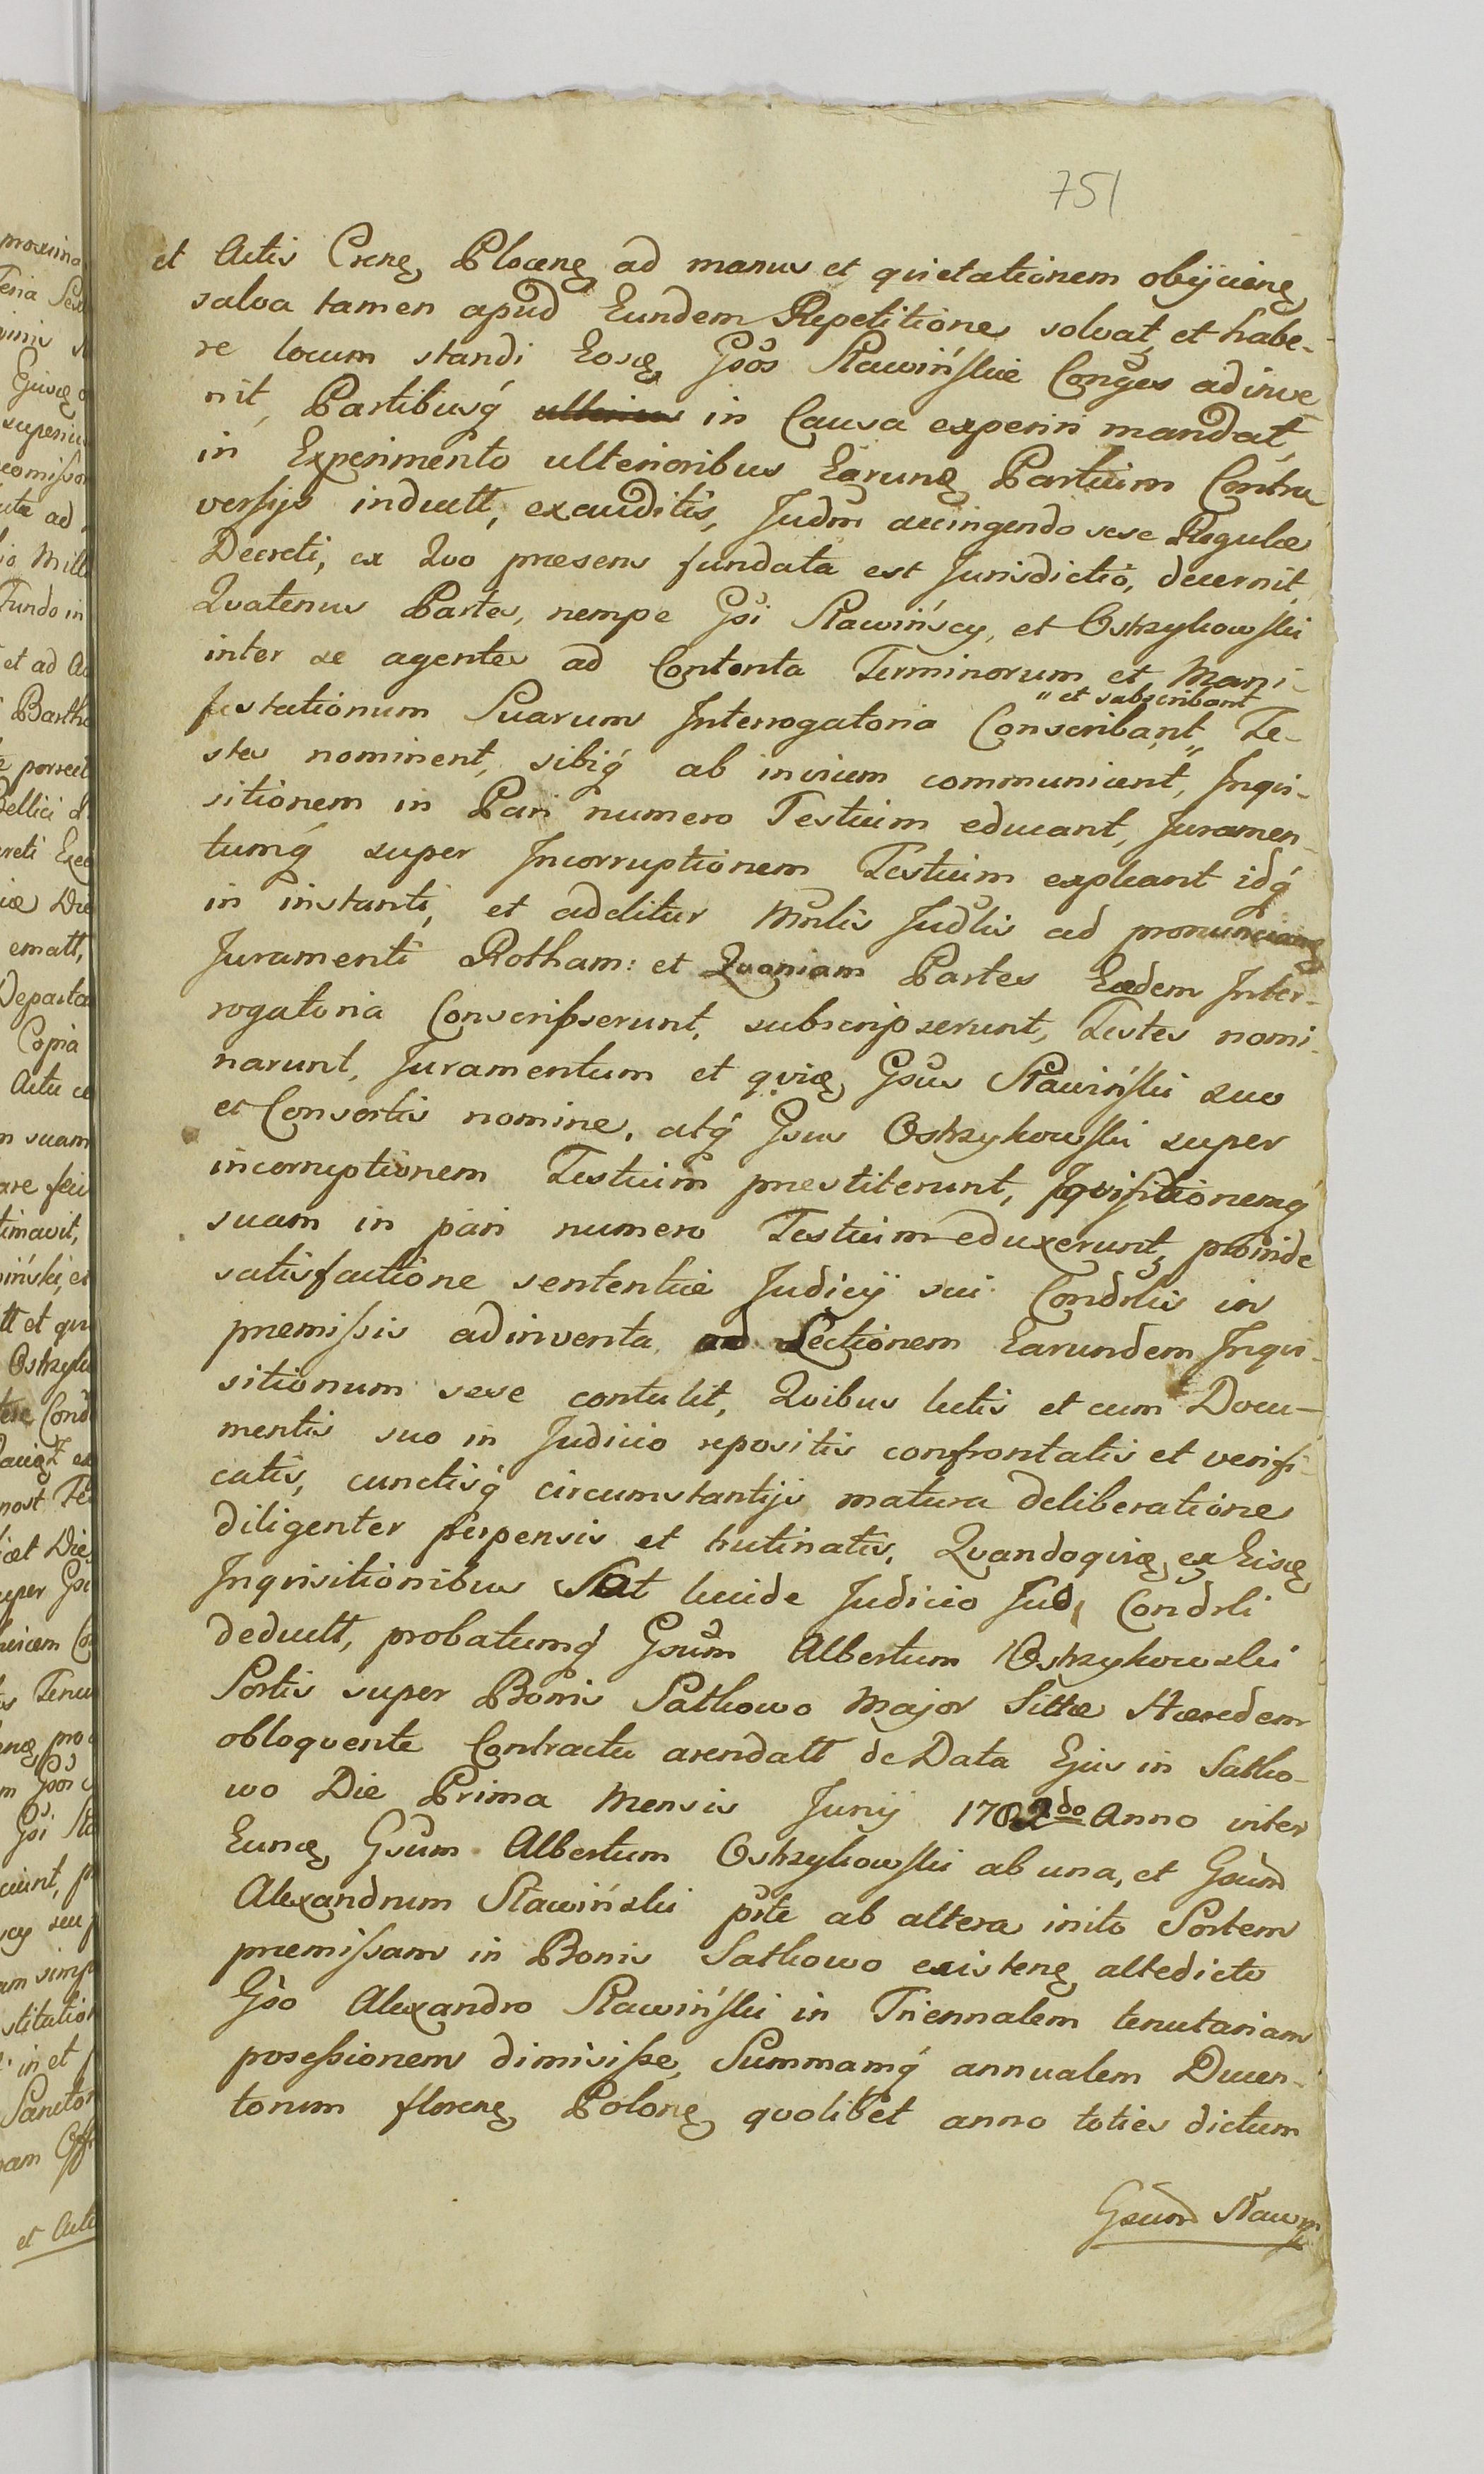 751
et Actis Crenę Plocenę ad manus et quietationem obijcienę
salva tamen apud Eundem Repetitione solvat, et habe-
re locum standi Eosdę Gsos Sławińskie Conges adinve
nit, Partibusq́ in Causa experiri mandat,
in Experimento ulterioribus Earundę Partium Contro
versijs indultt, exauditis, Judm accingendo sese Regulæ
Decreti, ex Quo præsens fundata est Jurisdictio, decernit,
Quatenus Partes, nempe Gsi Sławińscy, et Ostrzykowski
inter se agentes ad Contenta Terminorum et Mani-
" et subscribant
festationum Suarum Interrogatoria Conscribant, " Te-
stes nominent, sibiq́ ab invicem communicent, Inqui-
sitionem in Pari numero Testium educant, Juramen-
tumq́ super Incorruptionem Testium expleant idq́
in instanti, et additur Mnlis Judlis ad pronuncianę
Juramenti Rotham: et Quoniam Partes Eædem Inter-
rogatoria Conscripserunt, subscripserunt, Testes nomi-
narunt, Juramentum et qvię Gsus Sławiński suo
et Consortis nomine, atq́ Gsus Ostrzykowski super
incorruptionem Testium præstiterunt, Inqvisitionemq́
suam in pari numero Testium eduxerunt, proinde
satisfactione sententiæ Judicij sui Condrlis in
præmissis adinventa, ad Lectionem Earundem Inqui-
sitionum sese contulit, Quibus lectis et cum Docu-
mentis suo in Judicio repositis confrontatis et verifi-
catis, cunctisq́ circumstantijs matura deliberatione
diligenter perpensis et trutinatis, Quandoquię ex Eisdę
Inquisitionibus Sat lucide Judicio Jud, Condrli
deductt, probatumq́ Gsum Albertum Ostrzykowski
Sortis super Bonis Sathowo Major Sittæ Hæredem
obloquente Contractu arendatt de Data Ejus in Satho-
wo Die Prima Mensis Junij 1782do Anno inter
Eundę Gsum Albertum Ostrzykowski ab una, et Gsum
Alexandrum Sławiński pte ab altera inito Sortem
præmissam in Bonis Sathowo existenę altedicto
Gso Alexandro Sławiński in Triennalem tenutariam
possessionem dimisisse, Summamq́ annualem Ducen-
torum florenę Polonę quolibet anno toties dictum
Gsum Sławiń